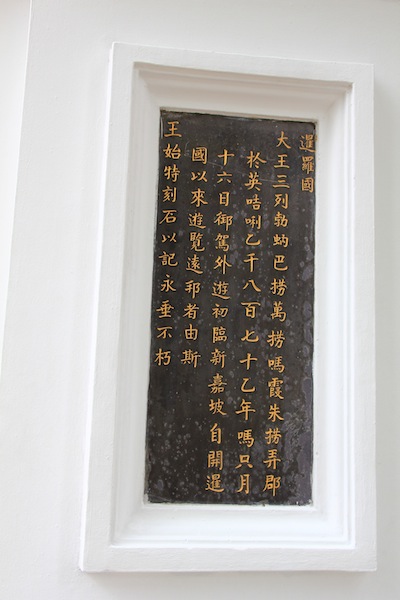 暹羅國
大王三列勃蚋巴撈萬撈嗎霞朱撈弄郡
於英咭唎乙千八百七十乙年嗎只月
十六日御駕外遊初臨新嘉坡自開暹
國以來遊覽遠邦者由斯
王始特刻石以記永垂不朽